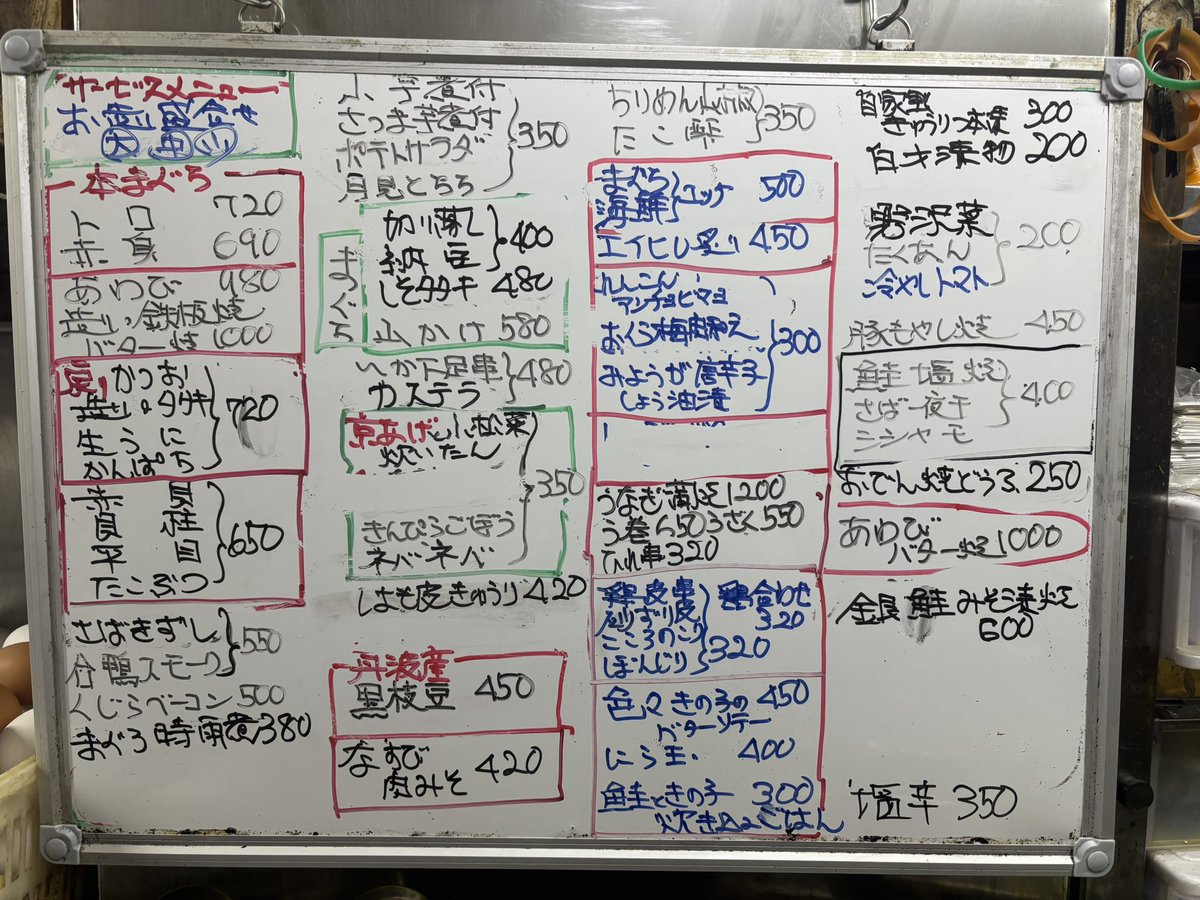 サービスメニュー
お造り盛合せ
大 中 小
本まぐろ
トロ 720
赤身 690
あわび 980
造り・鉄板焼
バター焼 1000
戻りかつお
造り・タタキ
生うに
かんぱち
720
赤貝
貝柱
平目
たこぶつ
650
さばきずし
合鴨スモーク
550
くじらベーコン 500
まぐろ時雨煮 380
小芋煮付
さつま芋煮付
ポテトサラダ
月見とろろ
350
まぐろ
切り落し
納豆
400
しそタタキ 480
山かけ 580
いか下足串
カステラ
480
京あげと小松菜
炊いたん
きんぴらごぼう
ネバネバ
350
はも皮きゅうり 420
丹波産
黒枝豆 450
なすび
肉みそ 420
ちりめん
たこ
350
まぐろ
海鮮
ユッケ 500
エイヒレ炙り 450
れんこん
アンチョビマヨ
おくら梅肉和え
みょうが唐辛子
しょう油漬
300
うなぎ蒲焼 1200
う巻 650 うざく 550
ひれ串 320
鶏皮串
砂ずり皮
こころのこり
ぼんじり
320
鶏合わせ
320
色々きの子の 450
バターソテー
にら玉 400
鮭ときの子 300
炊き込ごはん
自家製
きゅうり一本漬 300
白才漬物 200
野沢菜
たくあん
冷やしトマト
200
豚もやし焼 450
鮭塩焼
さば一夜干
シシャモ
400
おでん焼どうふ 250
あわび
バター焼 1000
銀鮭みそ漬焼
600
塩辛 350